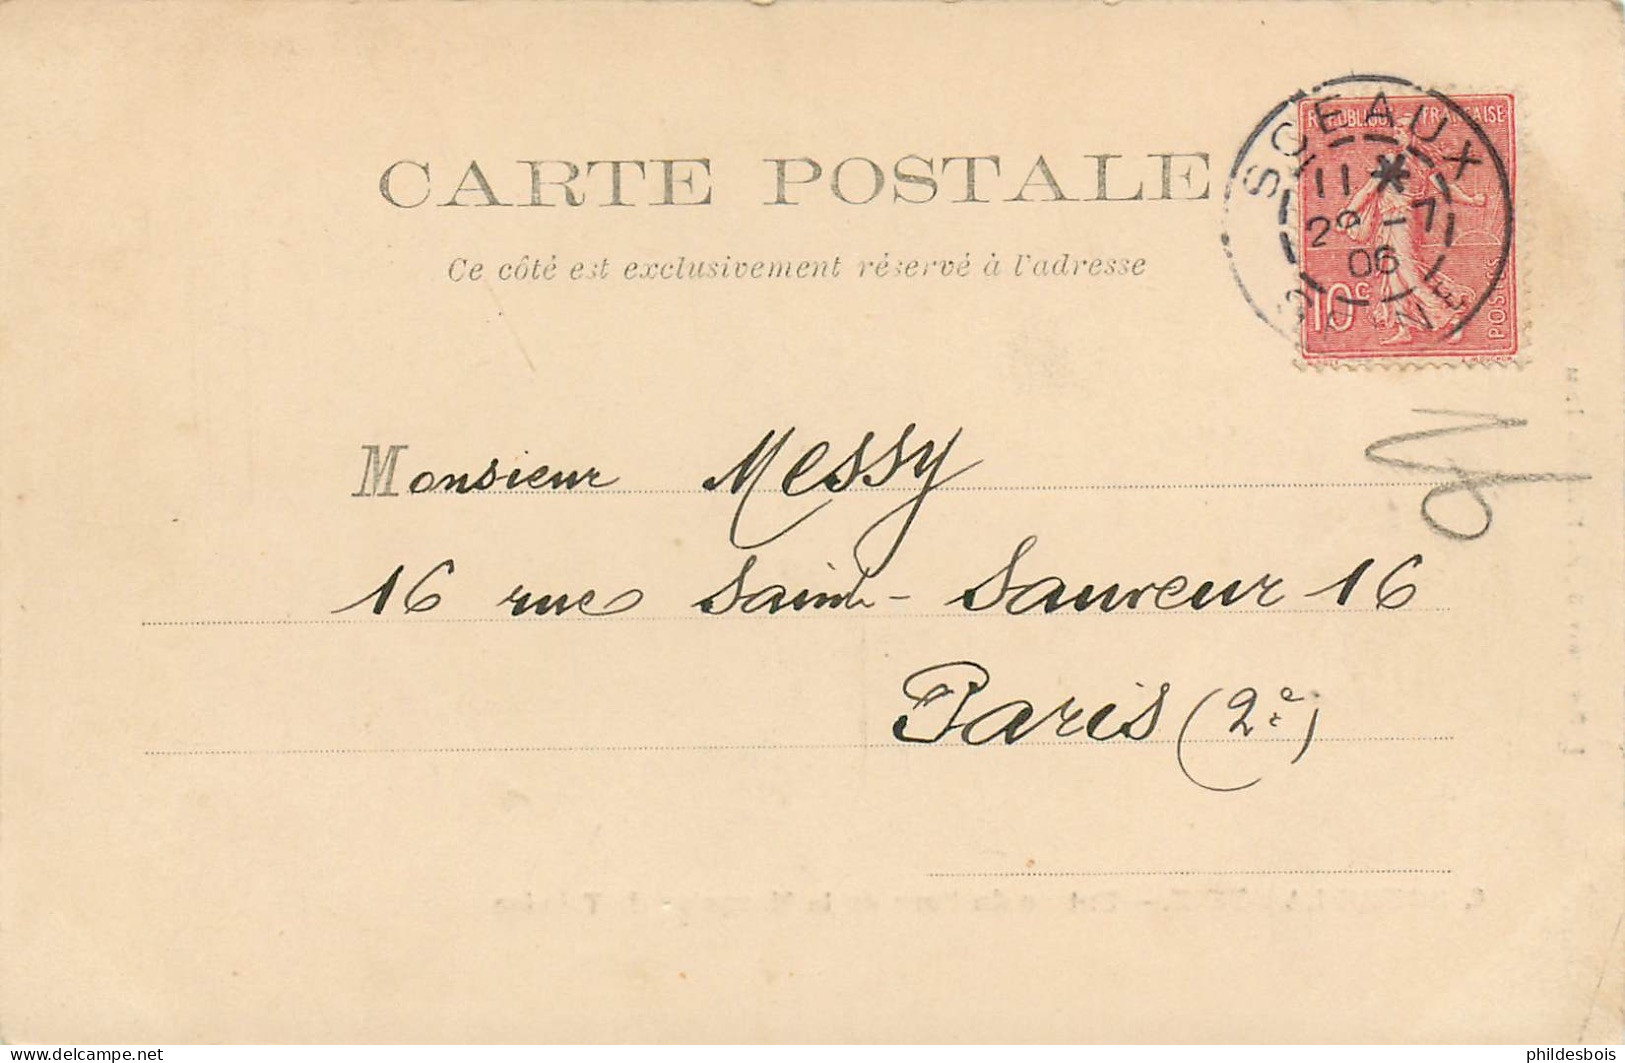 CARTE POSTALE
Ce côté est exclusivement réservé à l'adresse
REPUBLIQUE FRANÇAISE
10c
POSTES
SCEAUX
11 *
-7
06
SEINE
Monsieur Messy
16 rue Saint-Sauveur 16
Paris (2e)
Delcampe.net
phildesbois